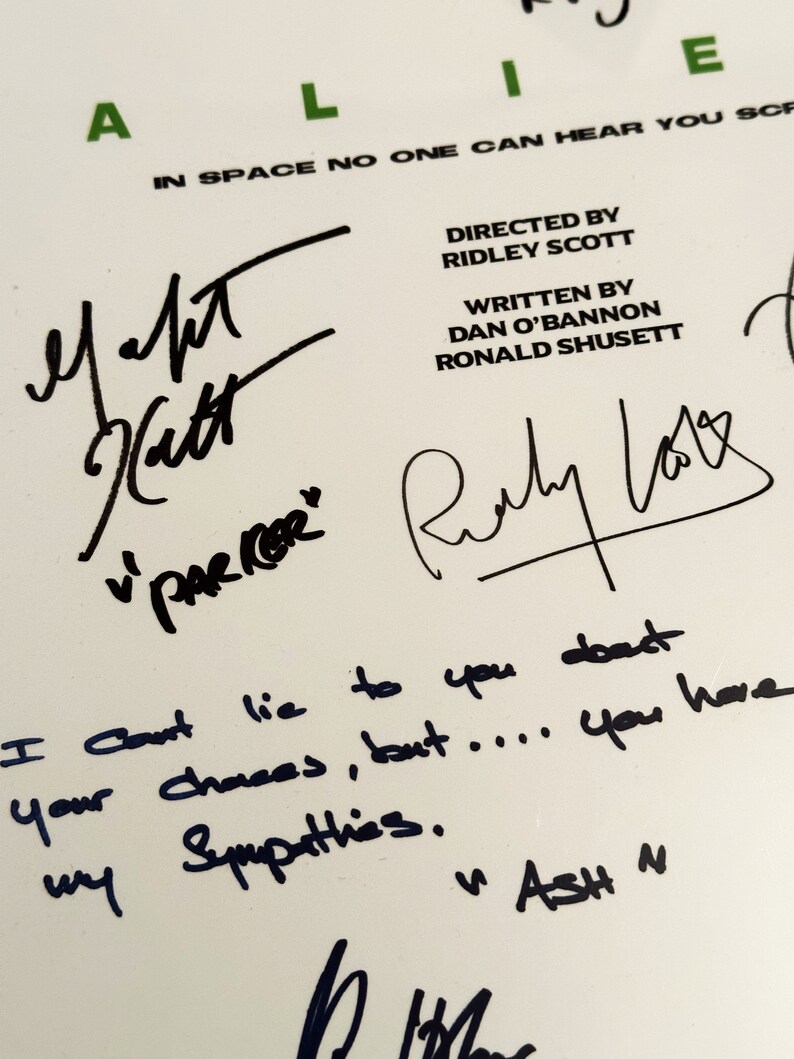 A L I E
IN SPACE NO ONE CAN HEAR YOU SCR
DIRECTED BY
RIDLEY SCOTT
WRITTEN BY
DAN O'BANNON
RONALD SHUSETT
"PARKER"
I can't lie to you about
your chances, but.... you have
my Sympathies.
"ASH"